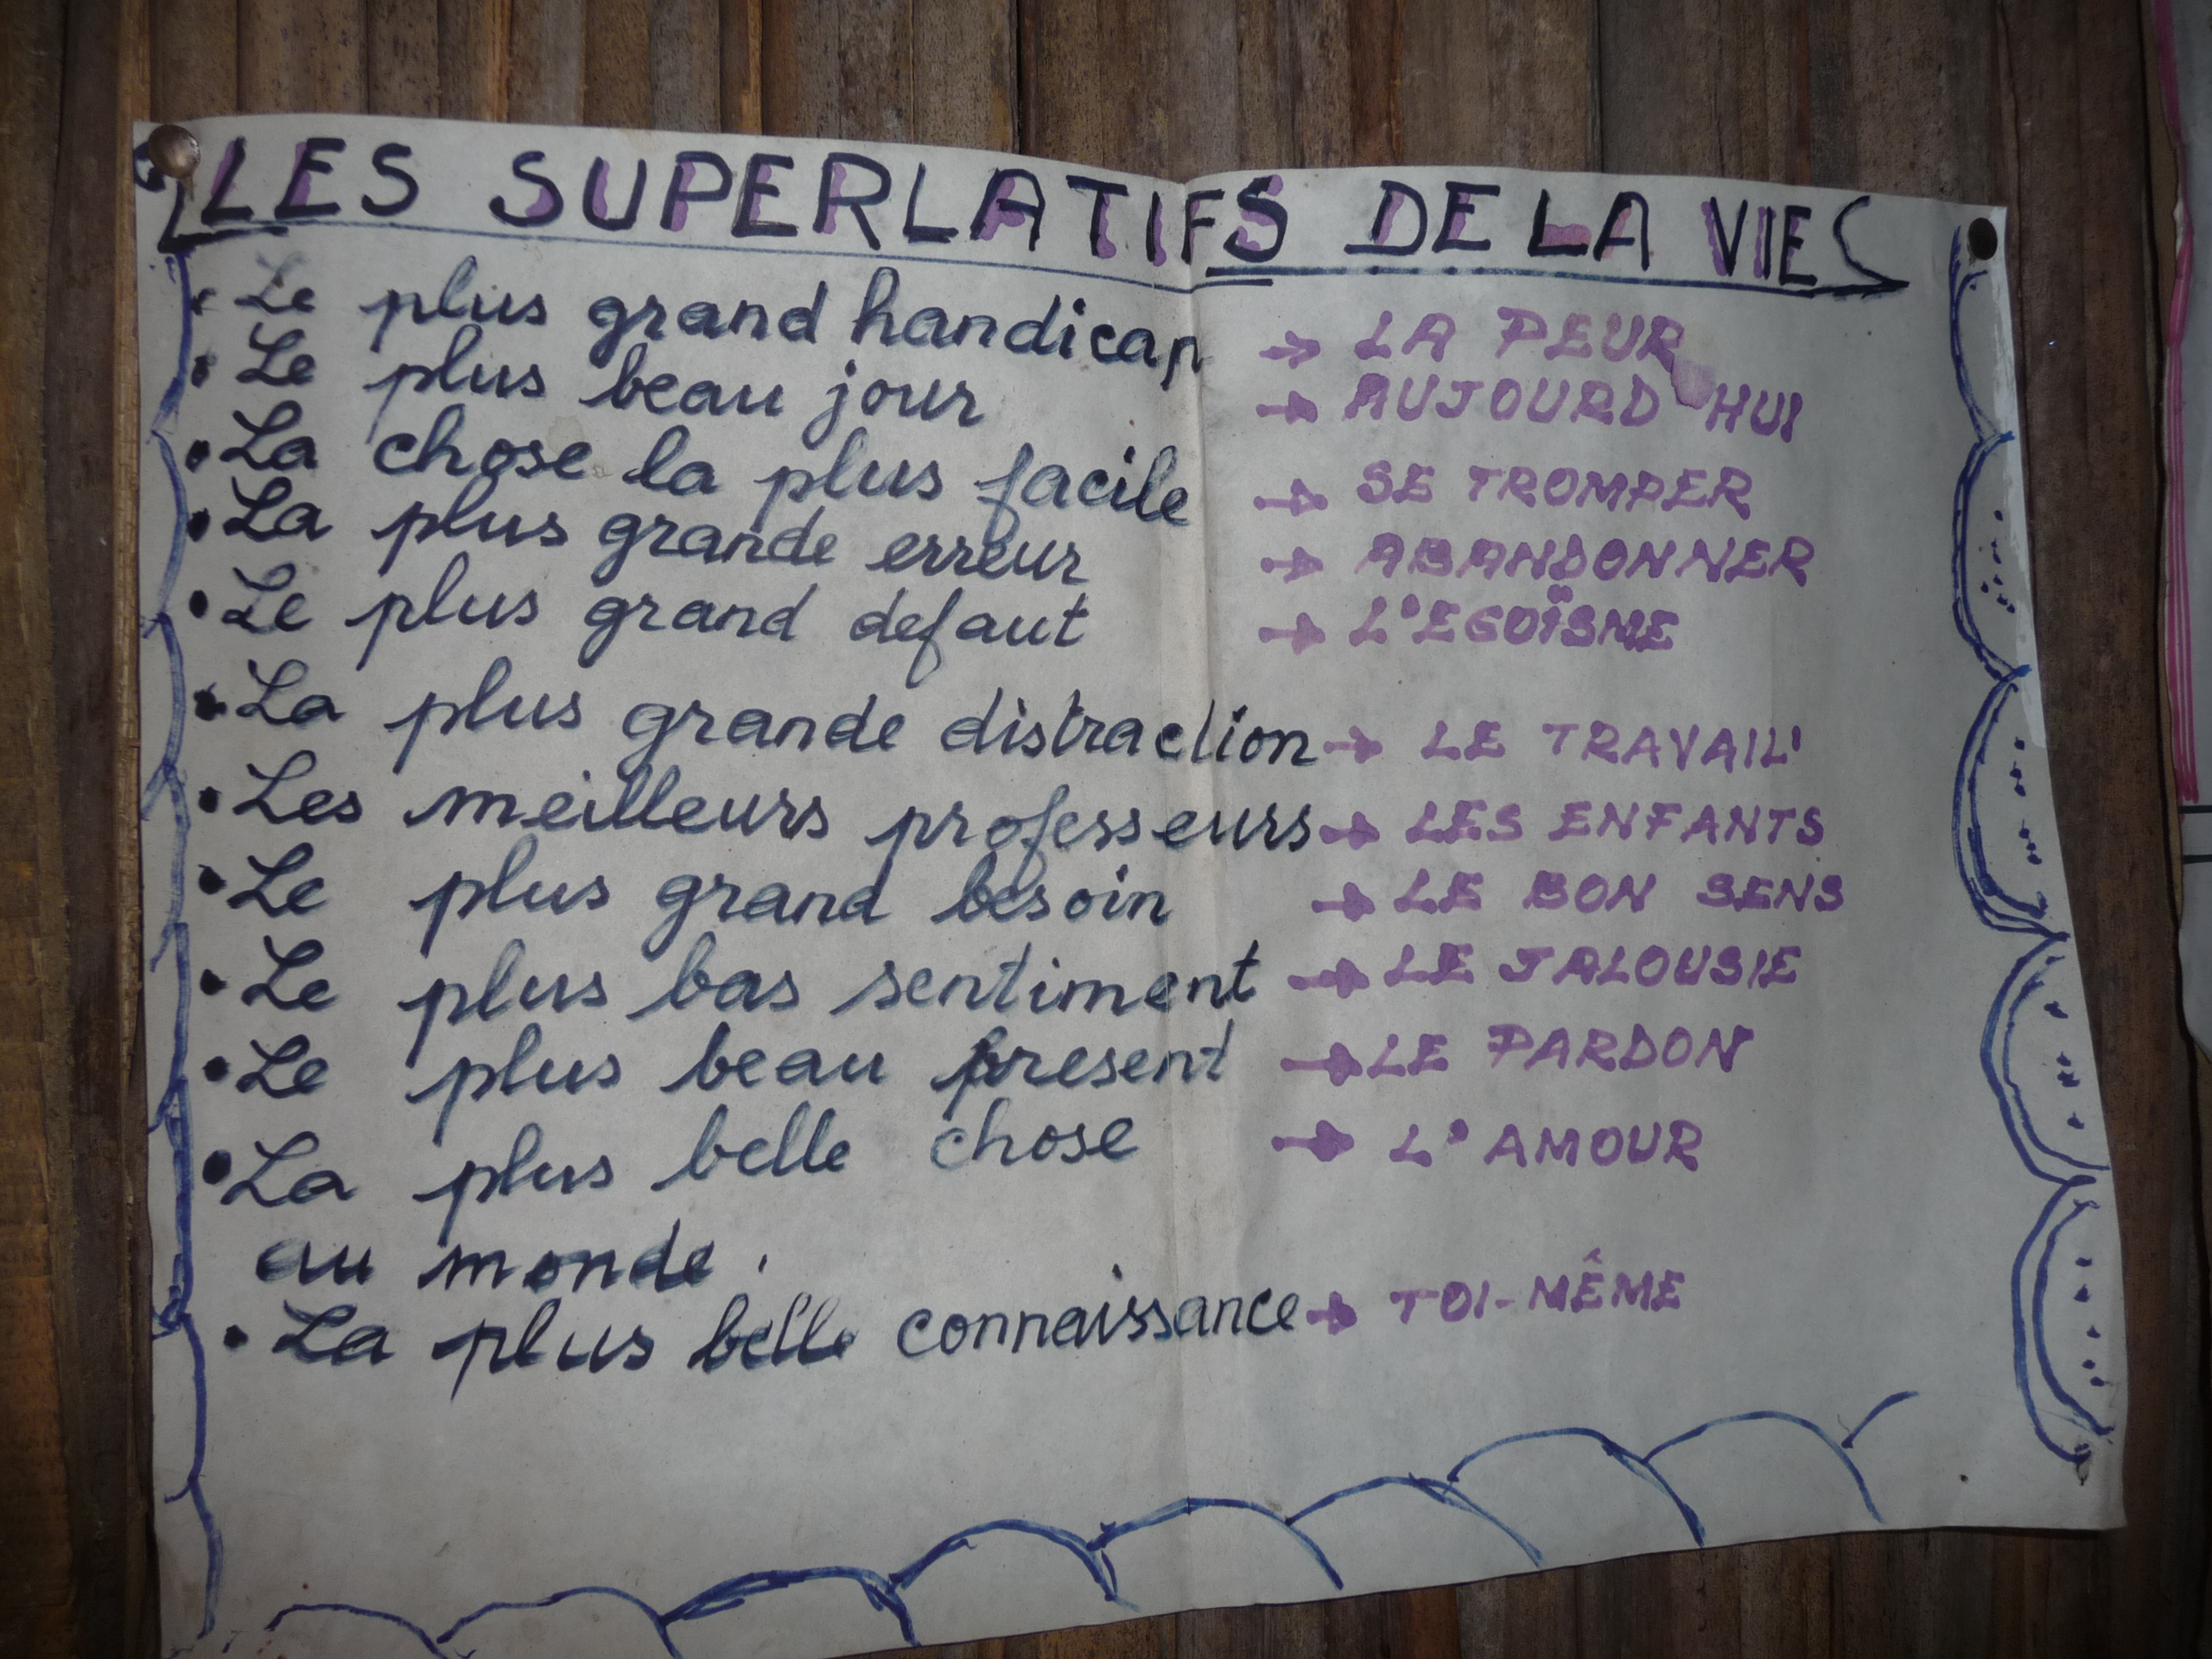 LES SUPERLATIFS DE LA VIE
• Le plus grand handicap → LA PEUR
• Le plus beau jour → AUJOURD'HUI
• La chose la plus facile → SE TROMPER
• La plus grande erreur → ABANDONNER
• Le plus grand defaut → L'EGOÏSME
• La plus grande distraction → LE TRAVAIL
• Les meilleurs professeurs → LES ENFANTS
• Le plus grand besoin → LE BON SENS
• Le plus bas sentiment → LE JALOUSIE
• Le plus beau present → LE PARDON
• La plus belle chose → L'AMOUR
au monde.
• La plus belle connaissance → TOI-MÊME